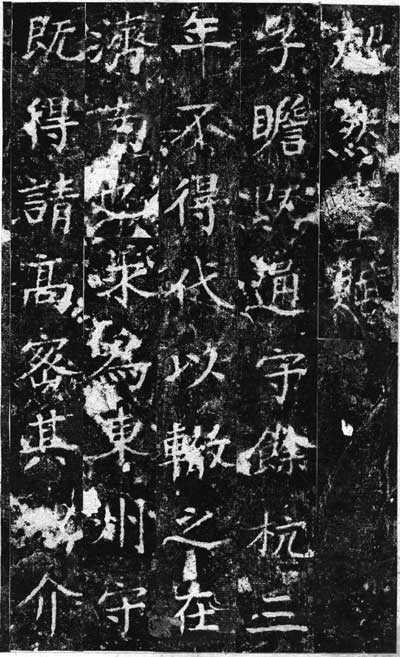 超然臺賦
子瞻既通守餘杭三
年不得代以轍之在
濟南也求爲東州守
既得請高密其介